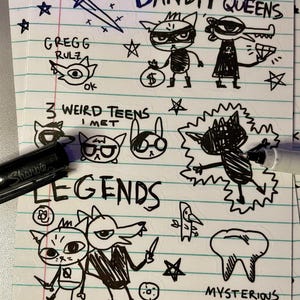 BANDIT QUEENS
GREGG
RULZ
OK
3 WEIRD TEENS
I MET
Sharpie
LEGENDS
MYSTERIOUS